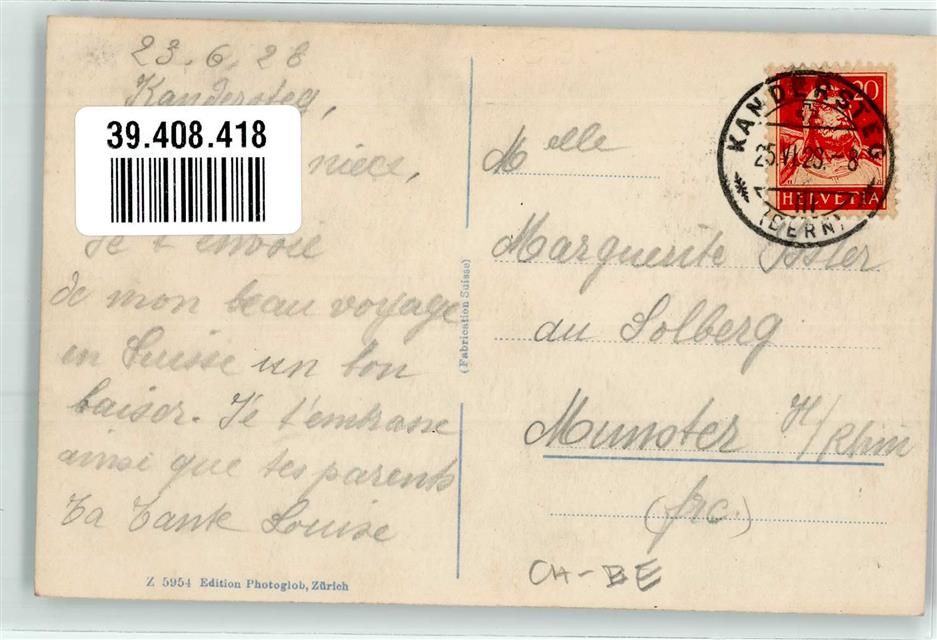 23.6.28
Kandersteg,
39.408.418
nièce,
Je t'envoie
de mon beau voyage
en Suisse un bon
baiser. Je t'embrasse
ainsi que tes parents
Ta Tante Louise
Z 5954 Edition Photoglob, Zürich
(Fabrication Suisse)
20
HELVETIA
KANDERSTEG
25.VI.28.-8
III
(BERN)
Melle
Marguerite
du Solberg
Munster H/Rhin
(frc.)
CH-BE